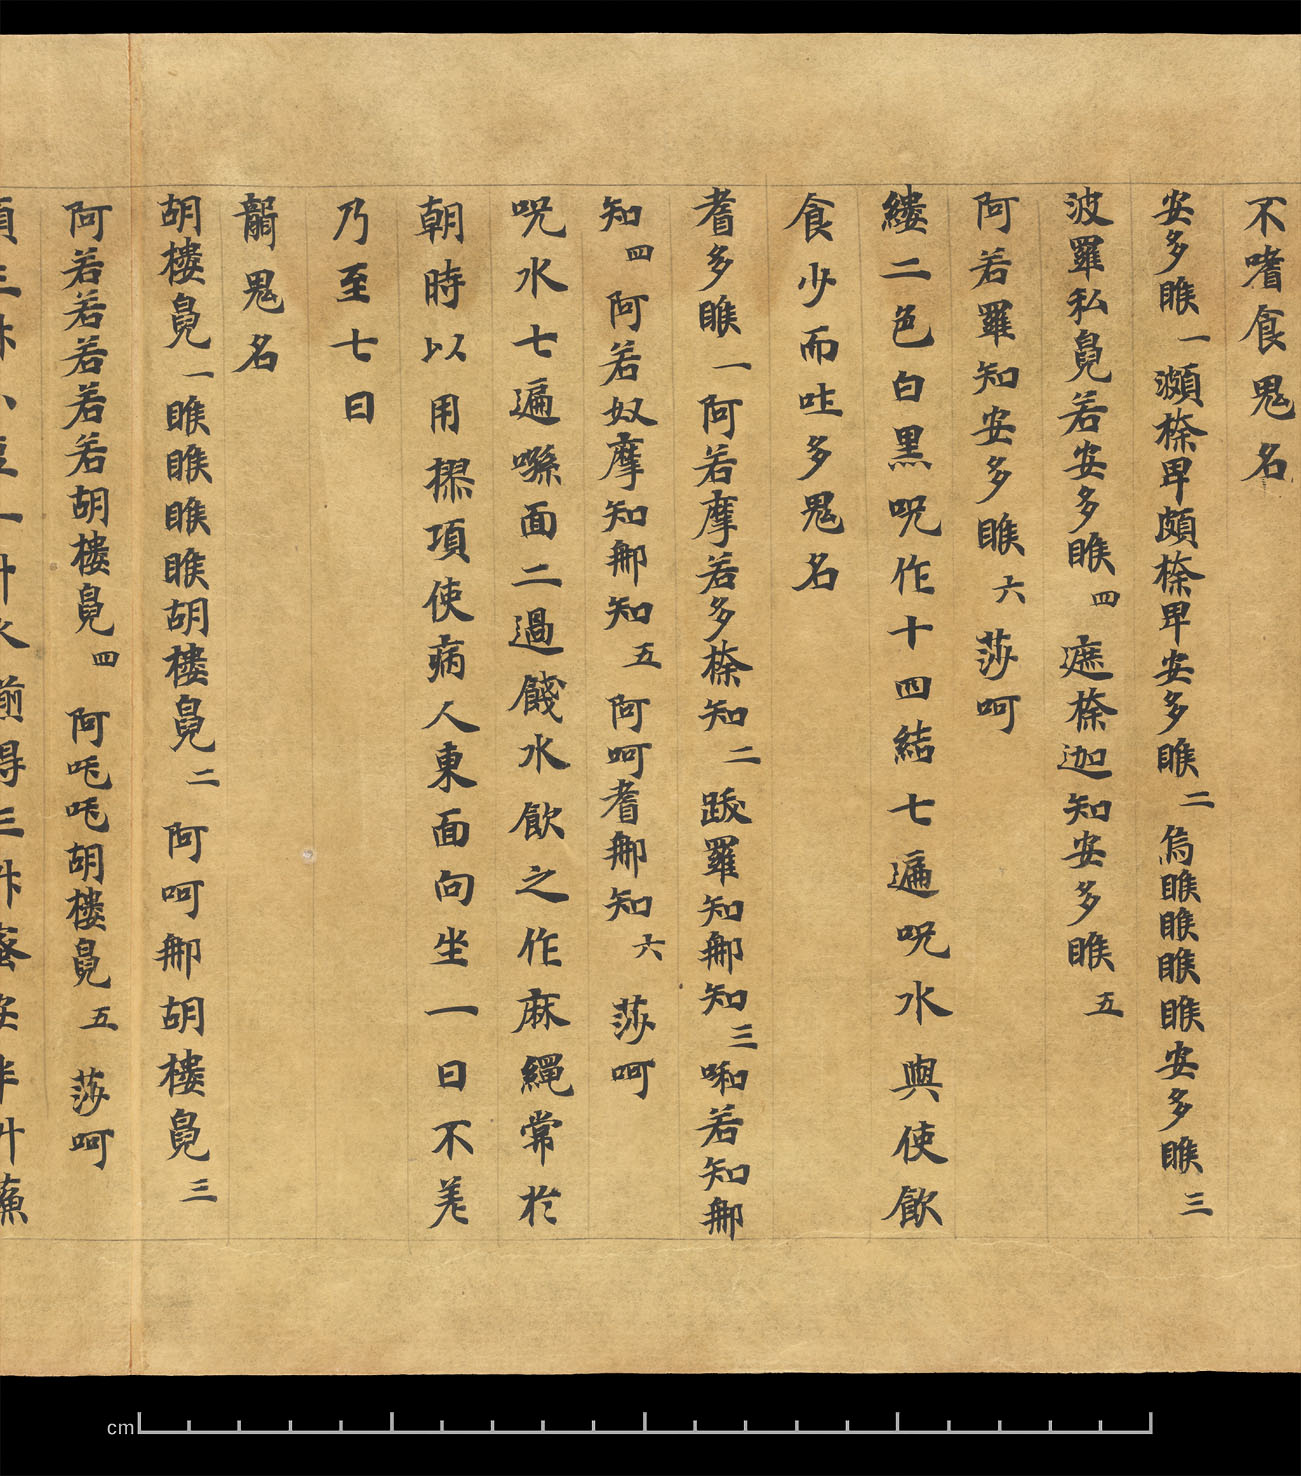 不嗜食鬼名
安多睺一瀨㮈卑頗㮈卑安多睺二烏睺睺睺睺安多睺三
波羅私㲋若安多睺四遮㮈迦知安多睺五
阿若羅知安多睺六莎呵
縷二色白黑呪作十四結七遍呪水與使飲
食少而吐多鬼名
耆多睺一阿若摩若多㮈知二跋羅知郍知三啝若知郍
知四阿若奴摩知郍知五阿呵耆郍知六莎呵
呪水七遍噀面二過餞水飲之作麻繩常於
朝時以用摎項使病人東面向坐一日不差
乃至七日
鬼名
胡樓㲋一睺睺睺睺胡樓㲋二阿呵郍胡樓㲋三
阿若若若若若胡樓㲋四阿吒吒胡樓㲋五莎呵
cm